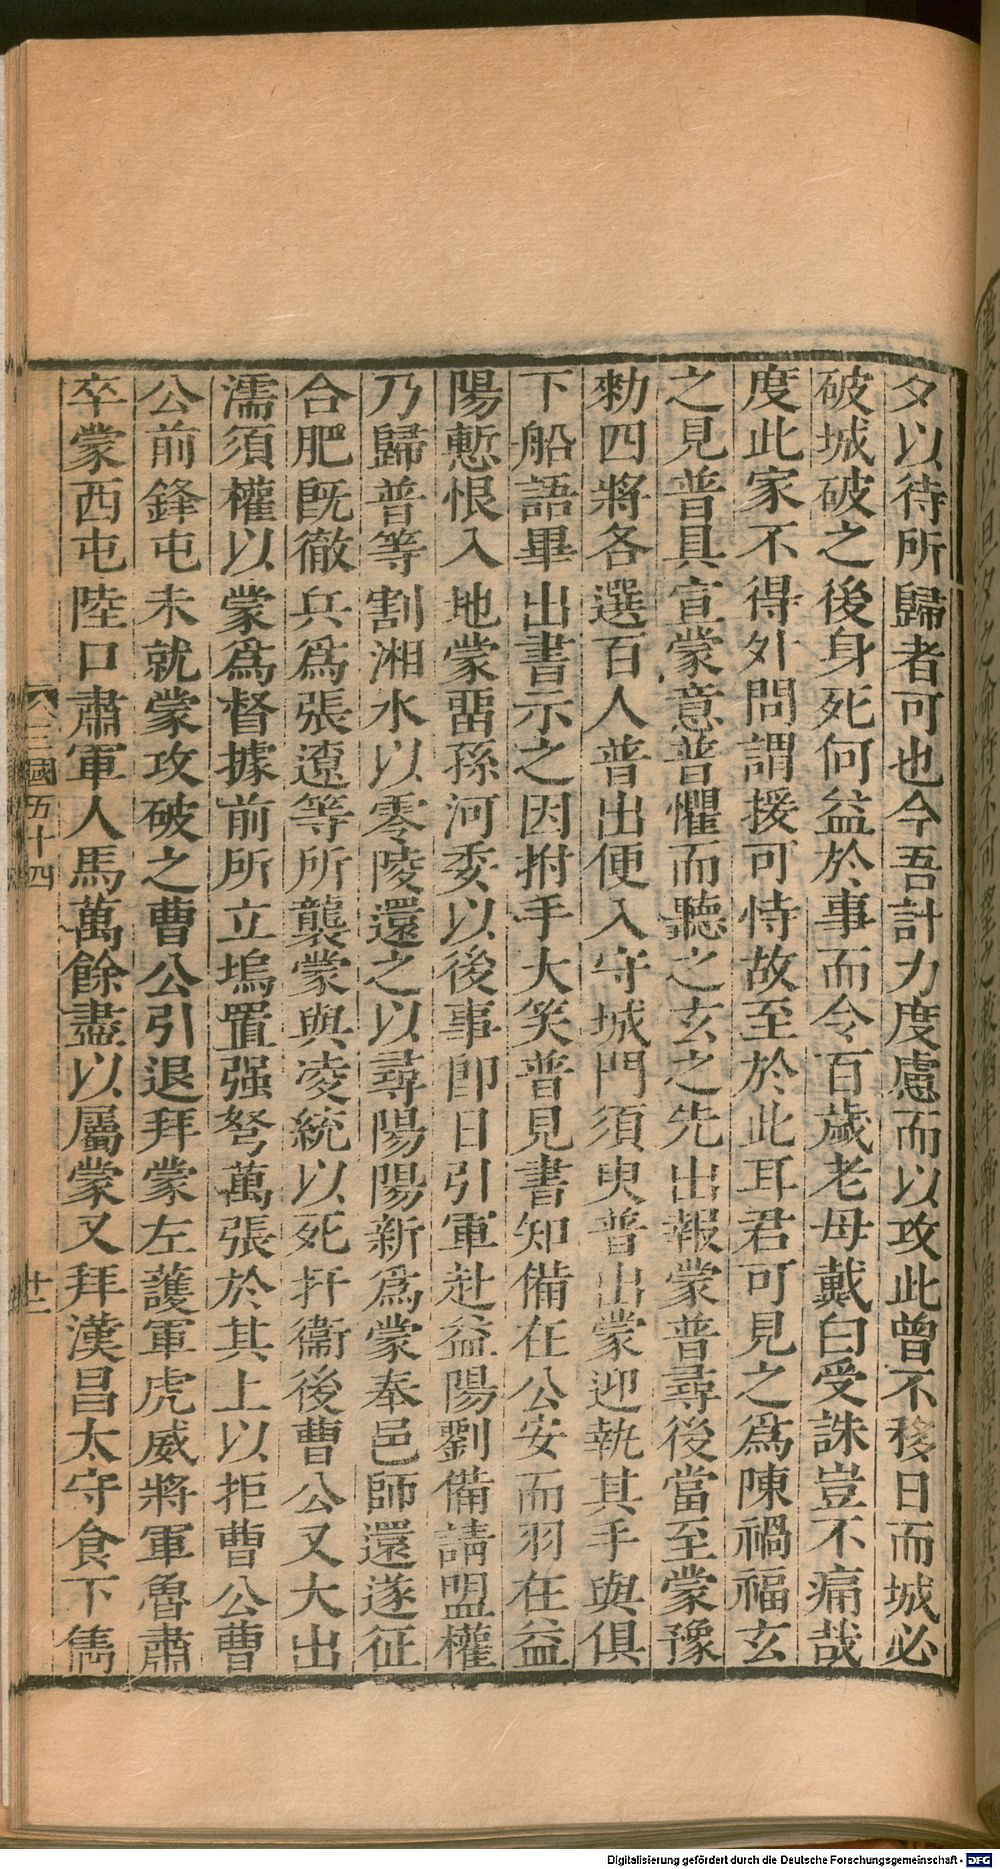 夕以待所歸者可也今吾計力度慮而以攻此曾不移日而城必
破城破之後身死何益於事而令百歲老母戴白受誅豈不痛哉
度此家不得外問謂援可恃故至於此耳君可見之爲陳禍福玄
之見普具宣蒙意普懼而聽之玄之先出報蒙普尋後當至蒙豫
勑四將各選百人普出便入守城門須臾普出蒙迎執其手與俱
下船語畢出書示之因拊手大笑普見書知備在公安而羽在益
陽慙恨入地蒙畱孫河委以後事卽日引軍赴益陽劉備請盟權
乃歸普等割湘水以零陵還之以尋陽陽新爲蒙奉邑師還遂征
合肥旣徹兵爲張遼等所襲蒙與凌統以死扞衞後曹公又大出
濡須權以蒙爲督據前所立塢置强弩萬張於其上以拒曹公曹
公前鋒屯未就蒙攻破之曹公引退拜蒙左護軍虎威將軍魯肅
卒蒙西屯陸口肅軍人馬萬餘盡以屬蒙又拜漢昌太守食下雋
三國五十四
十二
Digitalisierung gefördert durch die Deutsche Forschungsgemeinschaft - DFG